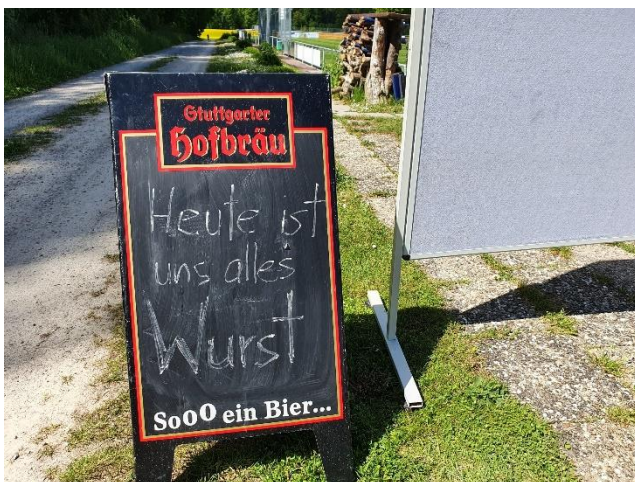 Stuttgarter
Hofbräu
Heute ist
uns alles
Wurst
Sooo ein Bier...